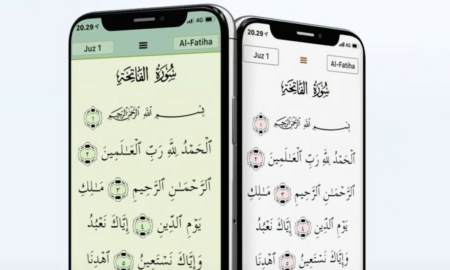 20.29
4G
Juz 1
Al-Fatiha
سُورَةُ الفَاتِحَةِ
بِسْمِ اللَّهِ الرَّحْمَٰنِ الرَّحِيمِ ١
الْحَمْدُ لِلَّهِ رَبِّ الْعَالَمِينَ ٢
الرَّحْمَٰنِ الرَّحِيمِ ٣ مَالِكِ
يَوْمِ الدِّينِ ٤ إِيَّاكَ نَعْبُدُ
وَإِيَّاكَ نَسْتَعِينُ ٥ اهْدِنَا
20.29
4G
Juz 1
Al-Fatiha
سُورَةُ الفَاتِحَةِ
بِسْمِ اللَّهِ الرَّحْمَٰنِ الرَّحِيمِ ١
الْحَمْدُ لِلَّهِ رَبِّ الْعَالَمِينَ ٢
الرَّحْمَٰنِ الرَّحِيمِ ٣ مَالِكِ
يَوْمِ الدِّينِ ٤ إِيَّاكَ نَعْبُدُ
وَإِيَّاكَ نَسْتَعِينُ ٥ اهْدِنَا